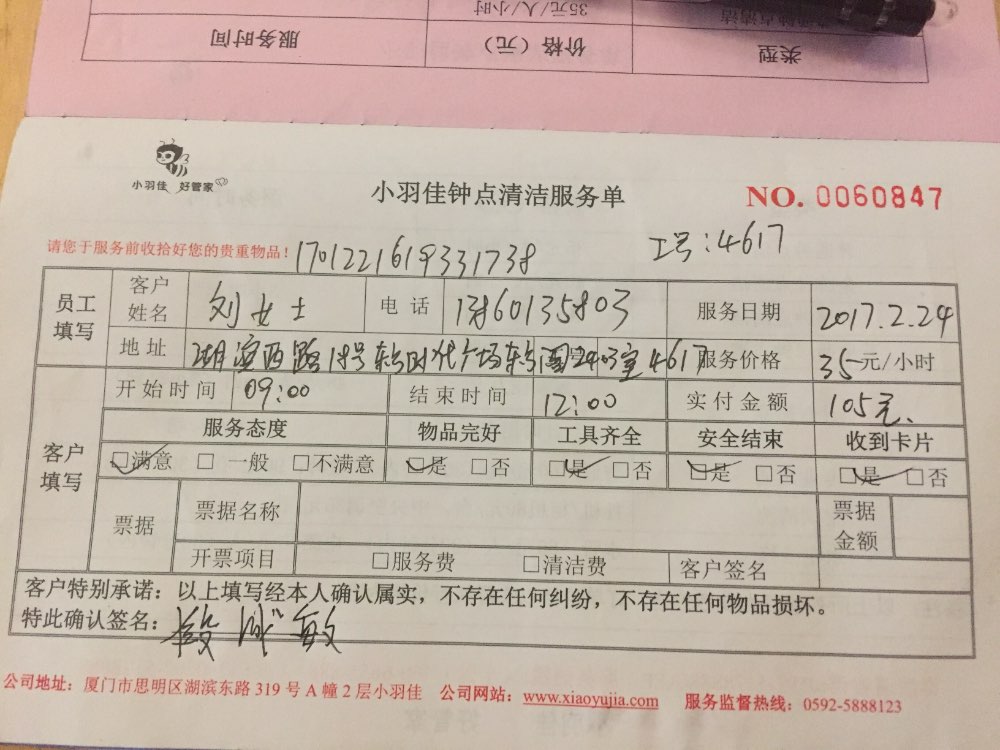 35元/人/小时
类型 价格（元） 服务时间
小羽佳 好管家
小羽佳钟点清洁服务单 NO. 0060847
请您于服务前收拾好您的贵重物品！ 1701221619331738 工号：4617
员工填写 客户姓名 刘女士 电话 13860135803 服务日期 2017.2.24
地址 湖滨西路19号东方时代广场东方图2403室4617 服务价格 35元/小时
开始时间 09:00 结束时间 12:00 实付金额 105元.
客户填写 服务态度 物品完好 工具齐全 安全结束 收到卡片
☑满意 □一般 □不满意 ☑是 □否 ☑是 □否 ☑是 □否 ☑是 □否
票据 票据名称 票据金额
开票项目 □服务费 □清洁费 客户签名
客户特别承诺：以上填写经本人确认属实，不存在任何纠纷，不存在任何物品损坏。
特此确认签名：
公司地址：厦门市思明区湖滨东路 319 号 A 幢 2 层小羽佳 公司网站：www.xiaoyujia.com 服务监督热线：0592-5888123